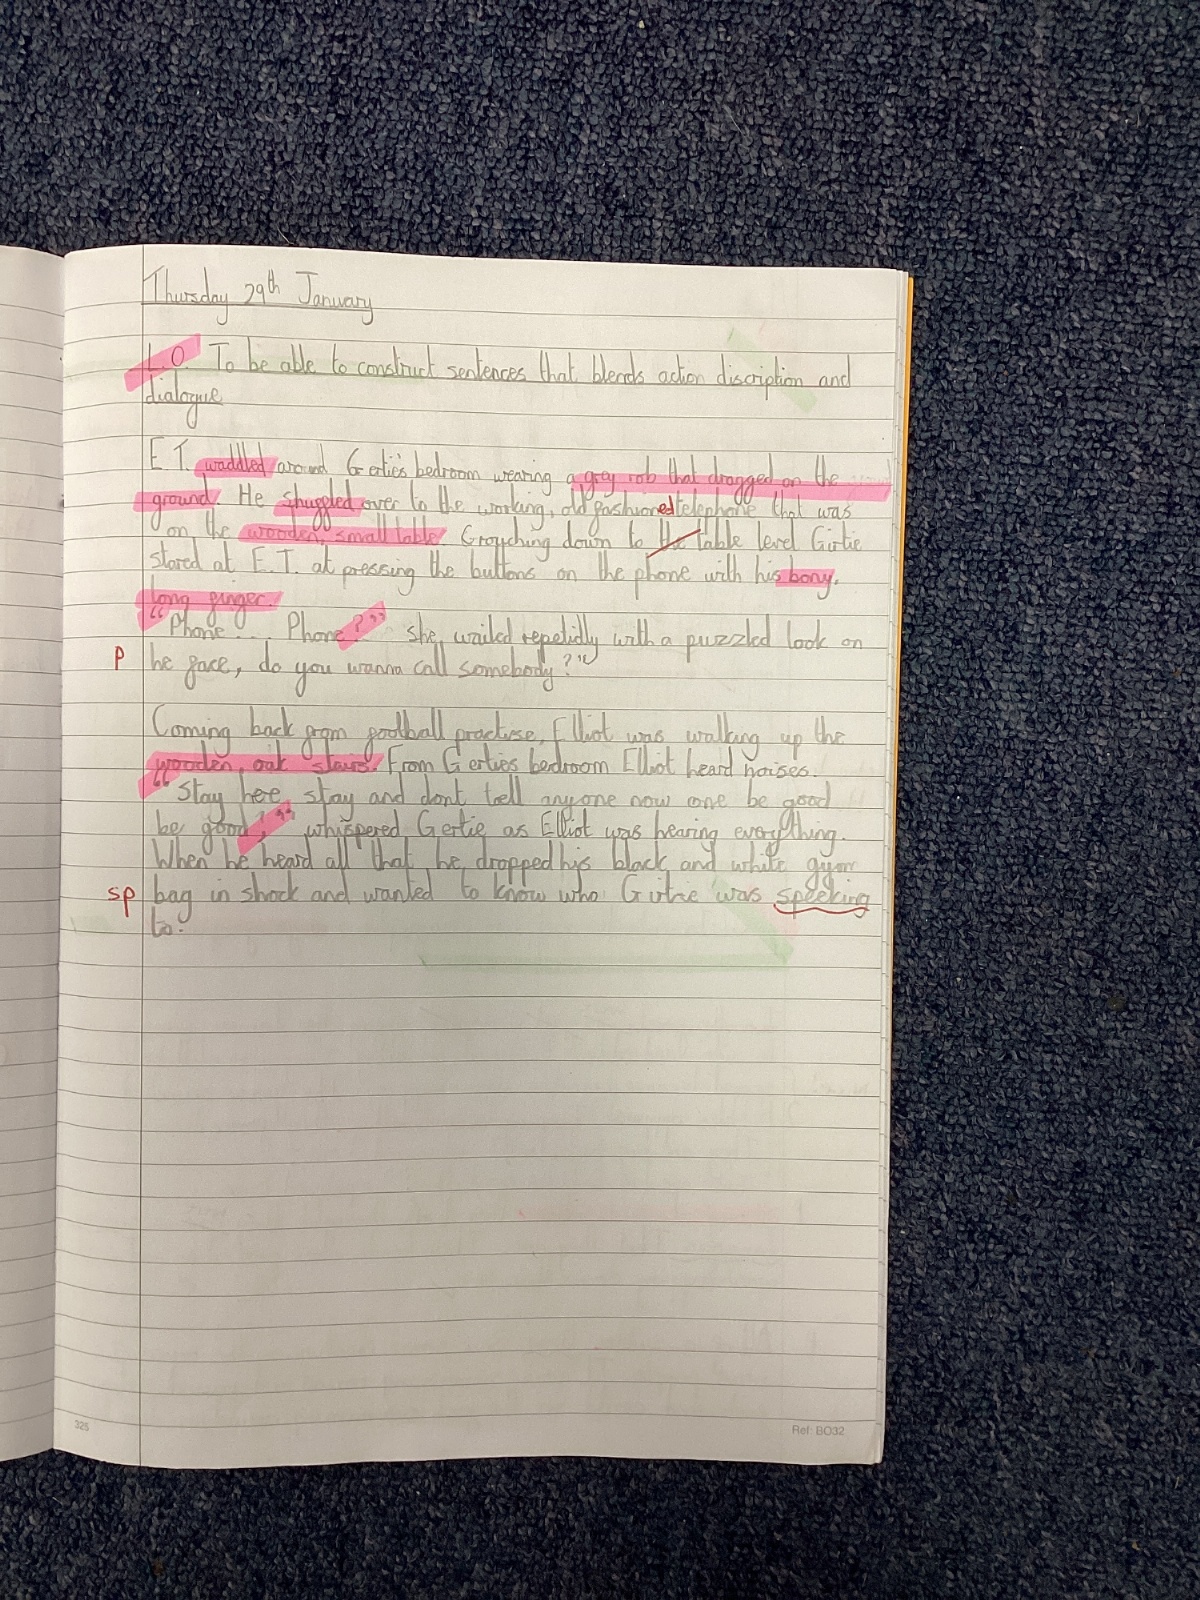 Thursday 29th January
L.O. To be able to construct sentences that blends action discription and
dialogue
E.T. waddled around Gertie's bedroom wearing a grey rob that dragged on the
ground. He shuffled over to the working, old fashioned telephone that was
on the wooden, small table. Crouching down to the table level Girtie
stared at E.T. at pressing the buttons on the phone with his bony,
long finger.
"Phone... Phone?" she wailed repetidly with a puzzled look on
p he face, do you wanna call somebody?"
Coming back from football practise, Elliot was walking up the
wooden oak stairs. From Gerties bedroom Elliot heard noises.
"Stay here stay and dont tell anyone now one be good
be good," whispered Gertie as Elliot was hearing everything.
When he heard all that he dropped his black and white gym
sp bag in shock and wanted to know who Girtie was speeking
to.
325
Ref: BO32